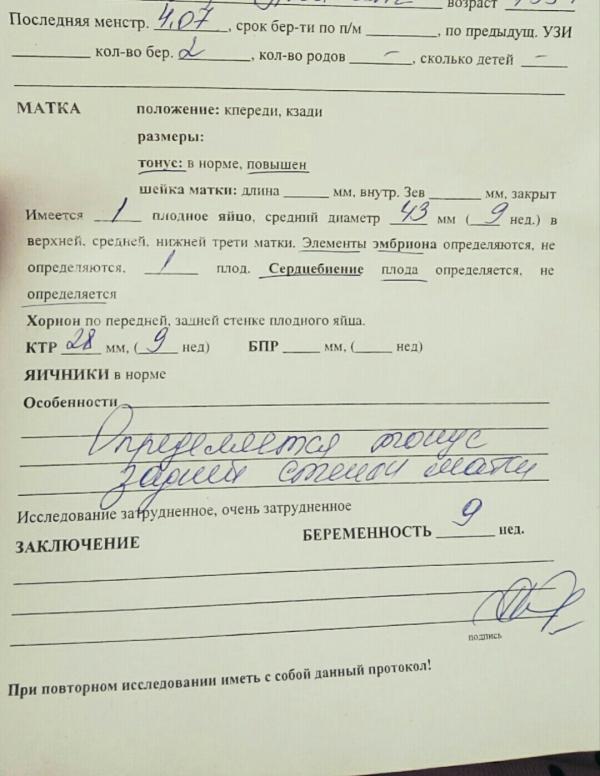 возраст
Последняя менстр. 4.07, срок бер-ти по п/м ________, по предыдущ. УЗИ
________ кол-во бер. 2, кол-во родов –, сколько детей –
МАТКА положение: кпереди, кзади
размеры:
тонус: в норме, повышен
шейка матки: длина ______ мм, внутр. Зев ______ мм, закрыт
Имеется 1 плодное яйцо, средний диаметр 43 мм (9 нед.) в
верхней, средней, нижней трети матки. Элементы эмбриона определяются, не
определяются, 1 плод. Сердцебиение плода определяется, не
определяется
Хорион по передней, задней стенке плодного яйца.
КТР 28 мм, (9 нед) БПР _____ мм, (_____ нед)
ЯИЧНИКИ в норме
Особенности
Определяется тонус
задней стенки матки
Исследование затрудненное, очень затрудненное
ЗАКЛЮЧЕНИЕ БЕРЕМЕННОСТЬ 9 нед.
подпись
При повторном исследовании иметь с собой данный протокол!